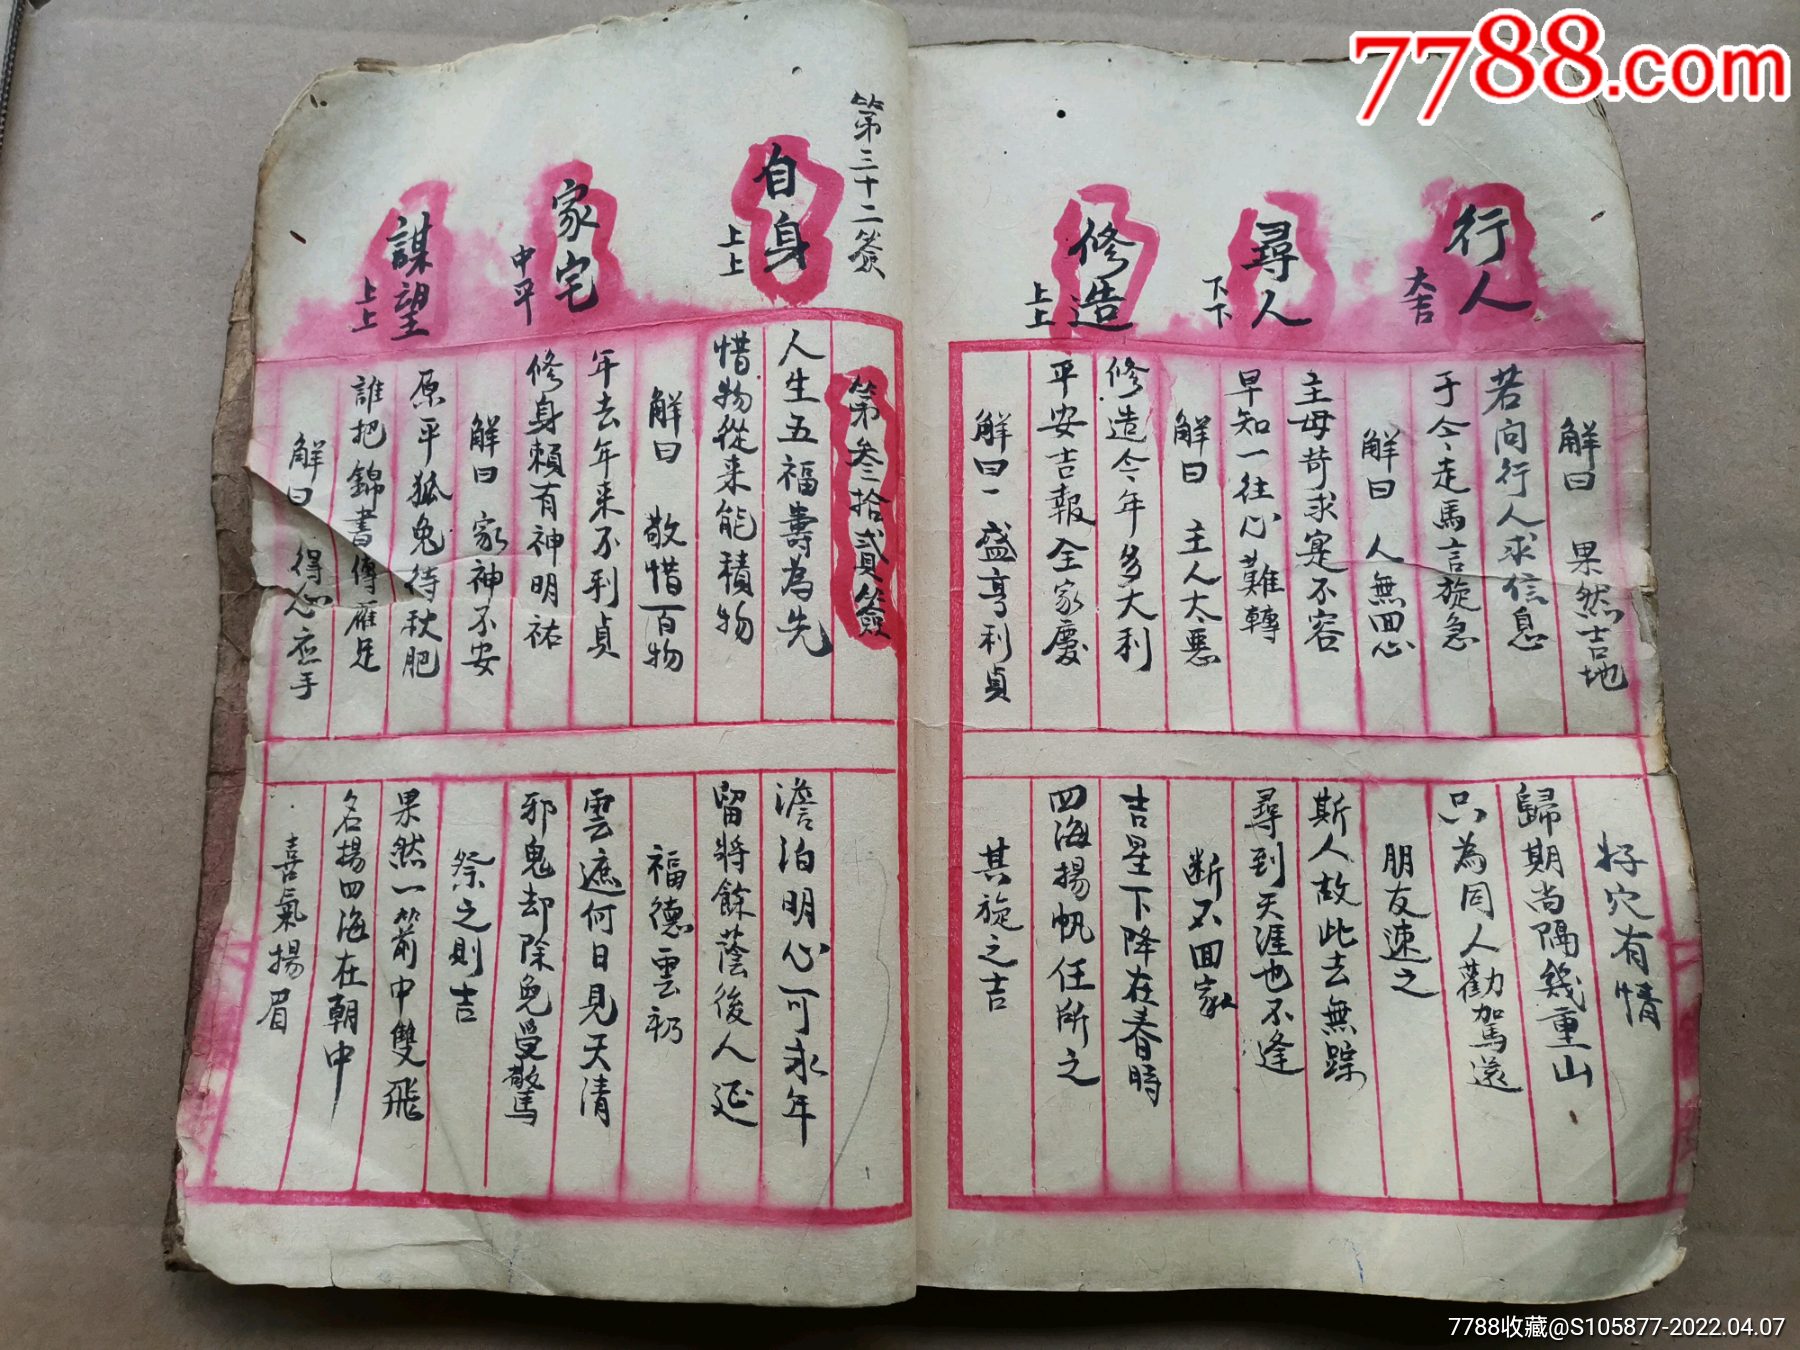 7788.com
行人
大吉
尋人
下下
修造
上上
解曰 果然吉地
好穴有情
若问行人求信息
歸期尚隔幾重山
于今走馬言旋急
只為同人勸駕還
解曰 人無回心
朋友速之
主母苛求寔不容
斯人故此去無踪
早知一往心難轉
尋到天涯也不逢
解曰 主人太惡
断不回家
修造今年多大利
吉星下降在春時
平安吉報全家慶
四海揚帆任所之
解曰 盛亨利貞
其旋之吉
第三十二簽
自身
上上
家宅
中平
謀望
上上
第叁拾貳簽
人生五福壽為先
澹泊明心可永年
惜物從来能積物
留將餘蔭後人延
解曰 敬惜百物
福德雲礽
年去年来不利貞
雲遮何日見天清
修身賴有神明祐
邪鬼却除免受驚
解曰 家神不安
祭之則吉
原平狐兔待秋肥
果然一箭中雙飛
誰把錦書傳雁足
名揚四海在朝中
解曰 得心應手
喜氣揚眉
7788收藏@S105877-2022.04.07